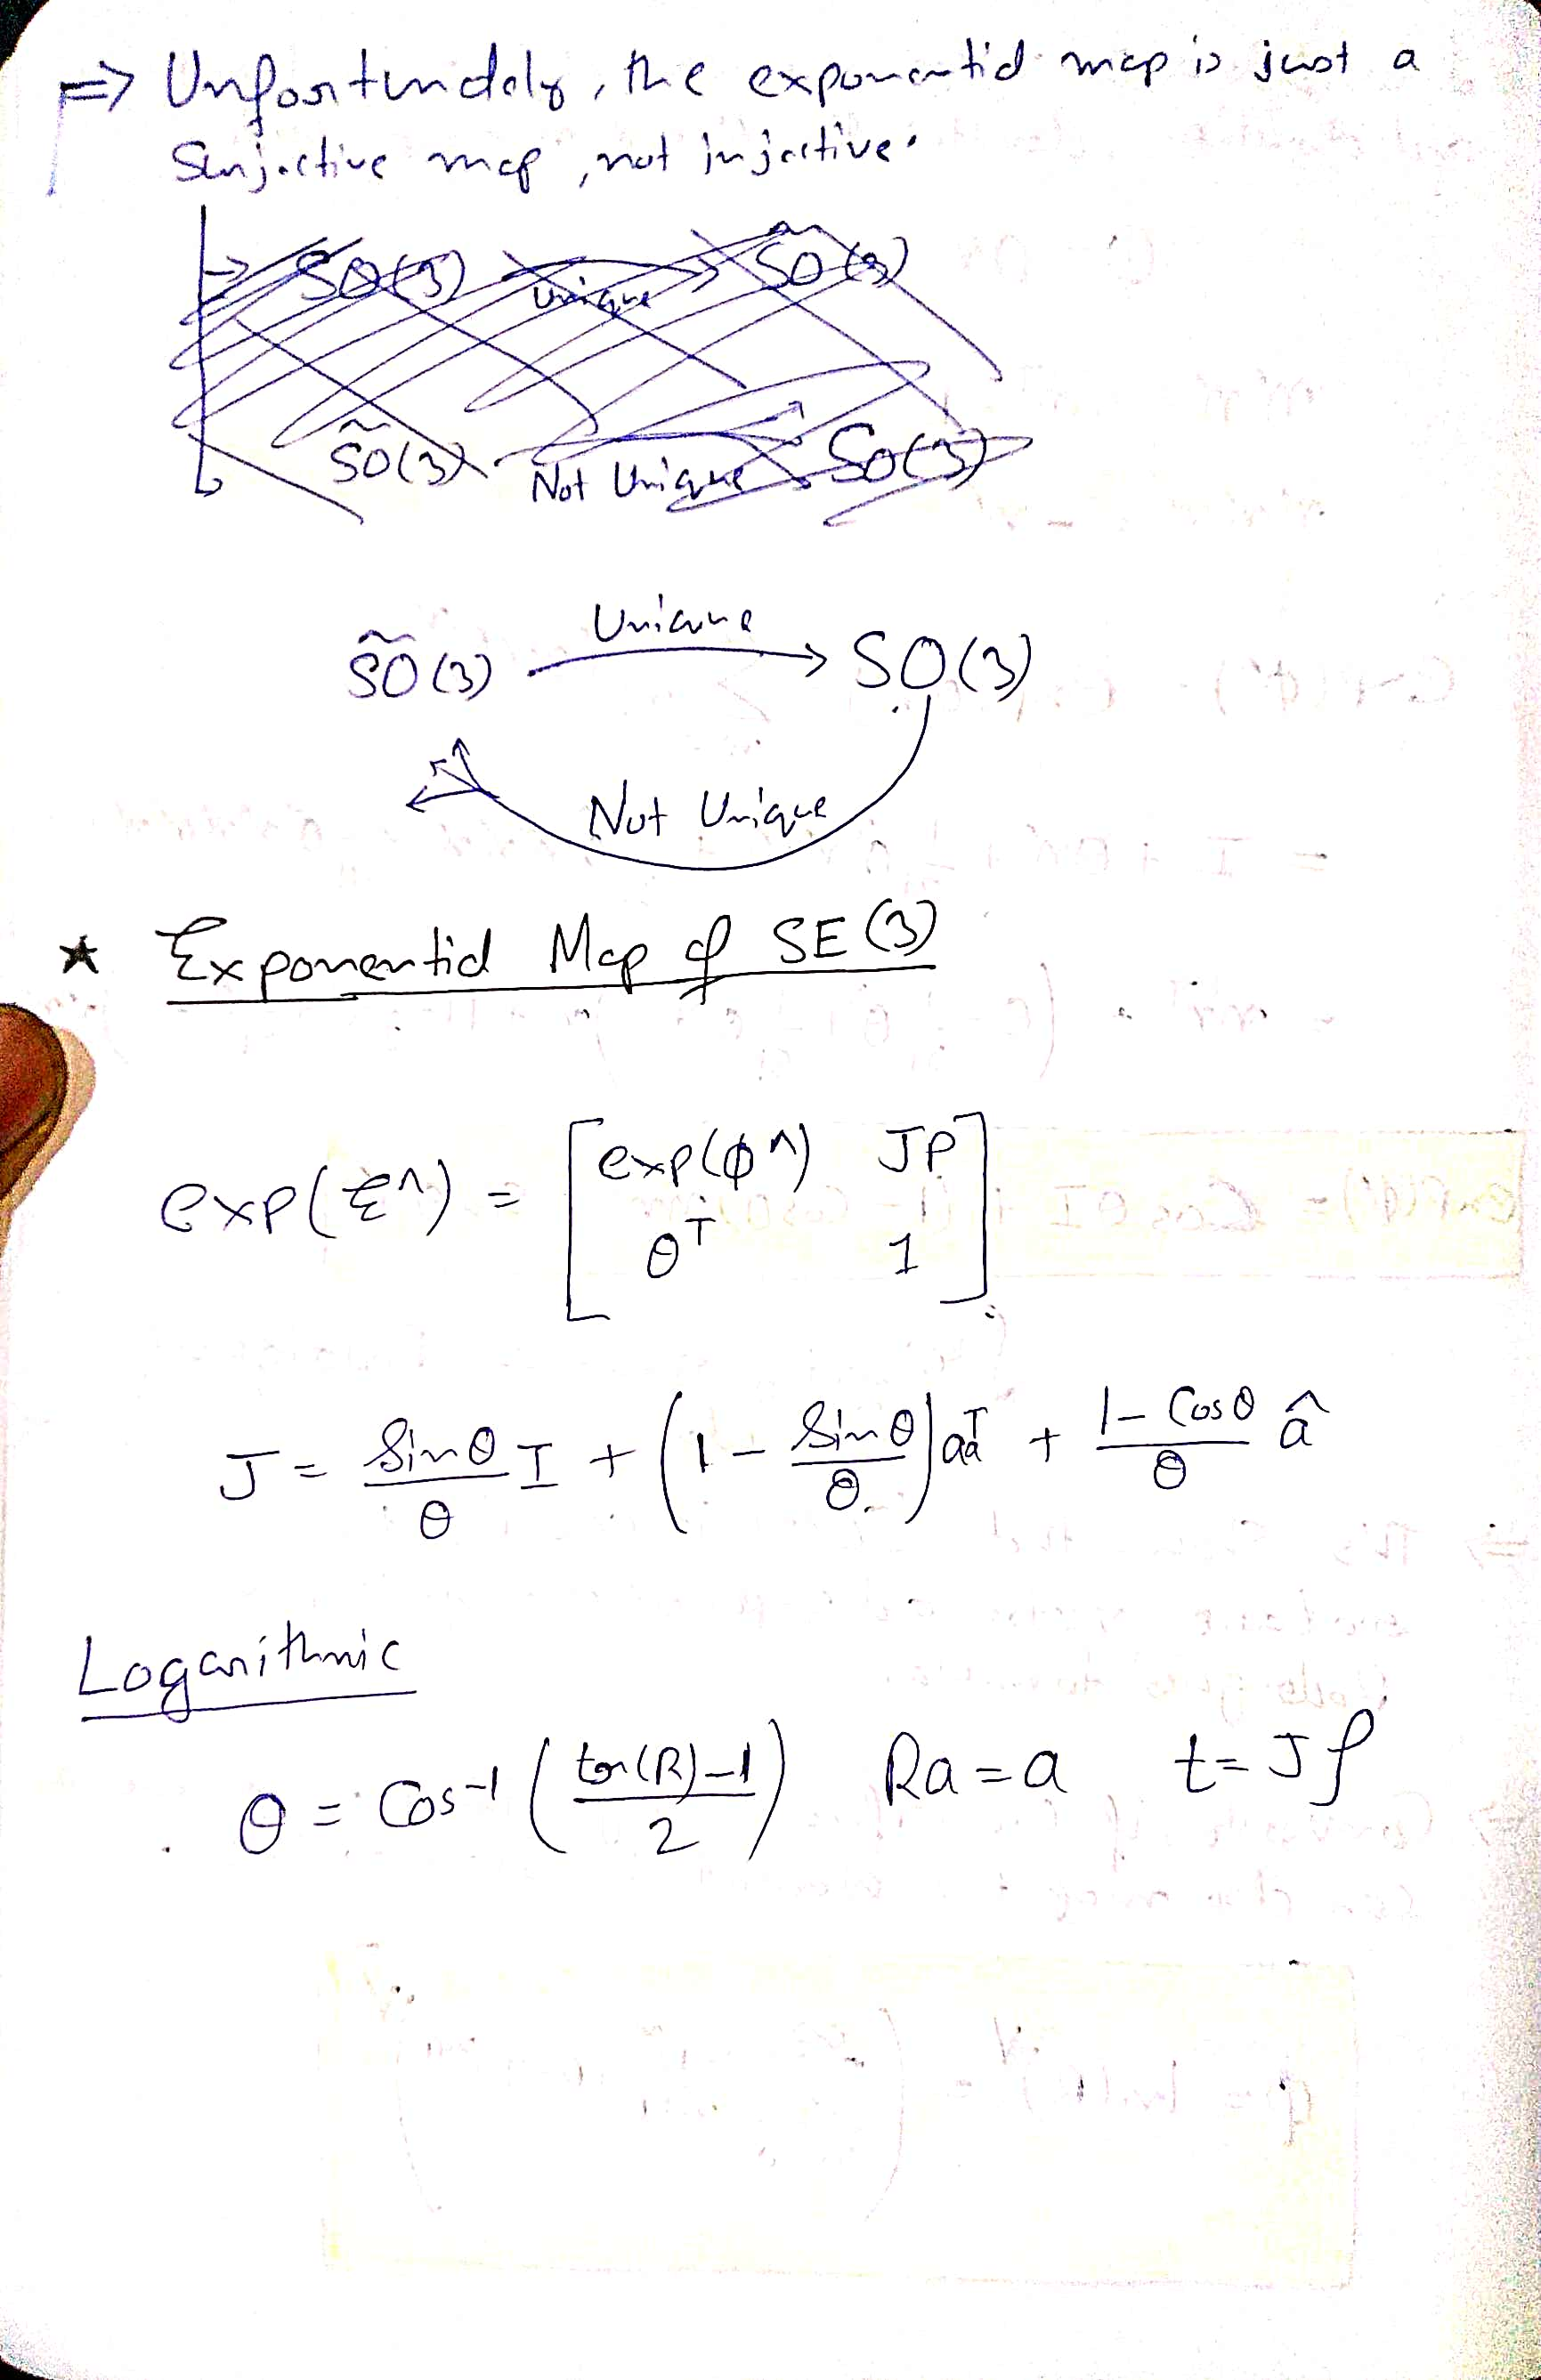 ⇒ Unfortunately, the exponential map is just a
Surjective map, not injective.
→ SO(3) Unique SO(3)
S̃O(3) Not Unique SO(3)
S̃O(3) Unique → SO(3)
Not Unique
★ Exponential Map of SE(3)
exp(ξ^) = [exp(φ^) Jρ
0ᵀ 1]
J = Sinθ/θ I + (1 - Sinθ/θ) aaᵀ + (1 - Cosθ)/θ â
Logarithmic
θ = Cos⁻¹ ((tr(R)-1)/2) Ra = a t = Jρ